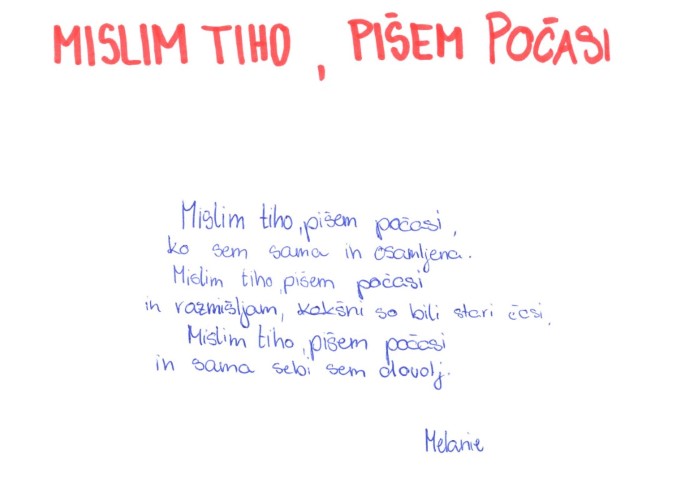 MISLIM TIHO, PIŠEM POČASI
Mislim tiho, pišem počasi,
ko sem sama in osamljena.
Mislim tiho, pišem počasi
in razmišljam, kakšni so bili stari časi.
Mislim tiho, pišem počasi
in sama sebi sem dovolj.
Melanie